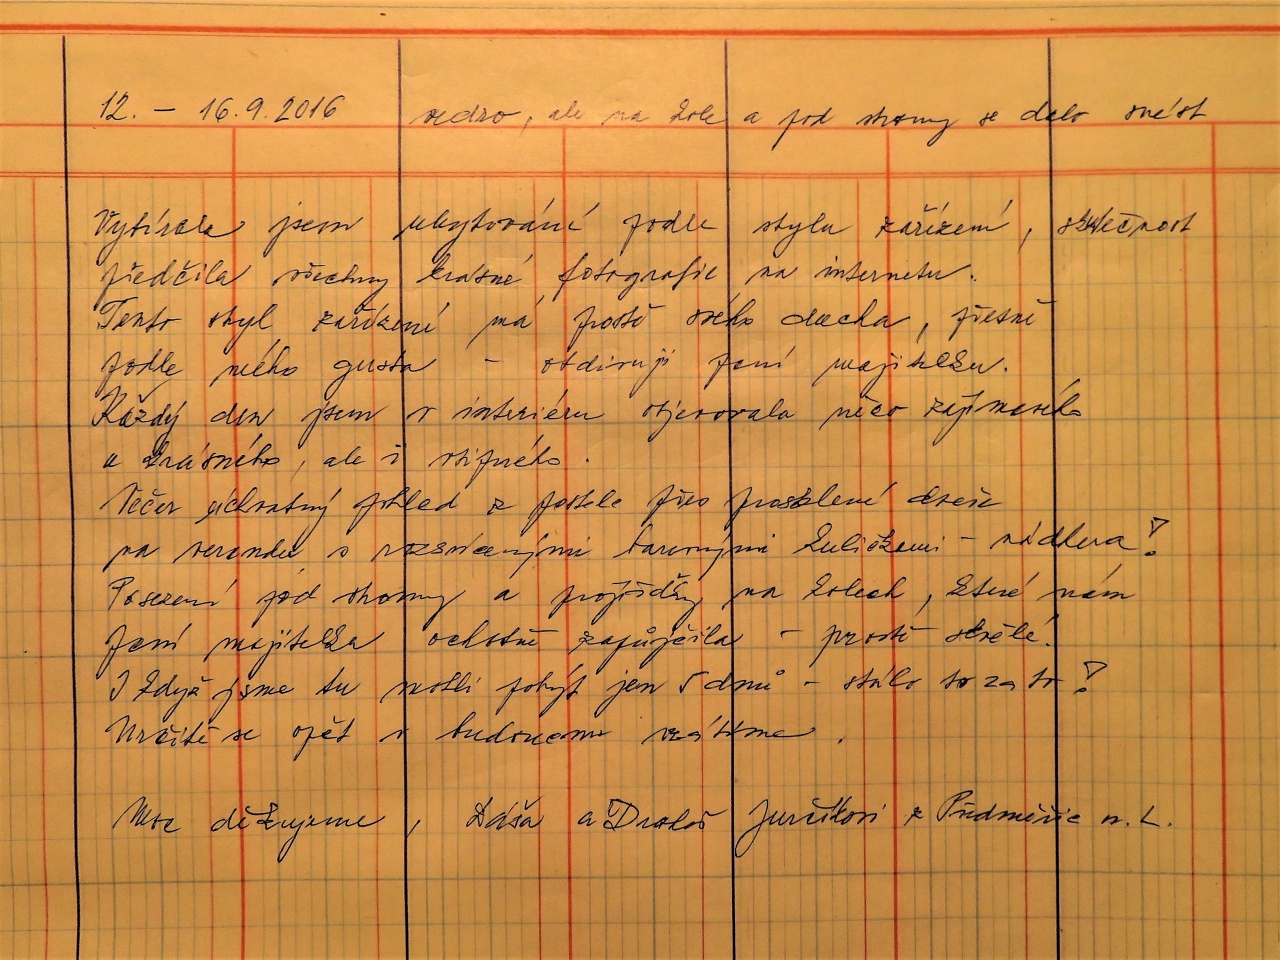 12. – 16.9.2016 vedro, ale na kole a pod stromy se dalo snést
Vybírala jsem ubytování podle stylu zařízení, skutečnost
předčila všechny krásné fotografie na internetu.
Tento styl zařízení má prostě svého ducha, přesně
podle mého gusta – obdivuji paní majitelku.
Každý den jsem v interiéru objevovala něco zajímavého
a krásného, ale i vtipného.
Večer úchvatný pohled z postele přes prosklené dveře
na verandu s rozsvícenými barevnými kuličkami – nádhera!
Posezení pod stromy a projížďky na kolech, které nám
paní majitelka ochotně zapůjčila – prostě skvělé!
I když jsme tu mohli pobýt jen 5 dnů – stálo to za to!
Určitě se opět v budoucnu vrátíme.
Moc děkujeme, Dáša a Jurčíkovi z Předměřic n. L.